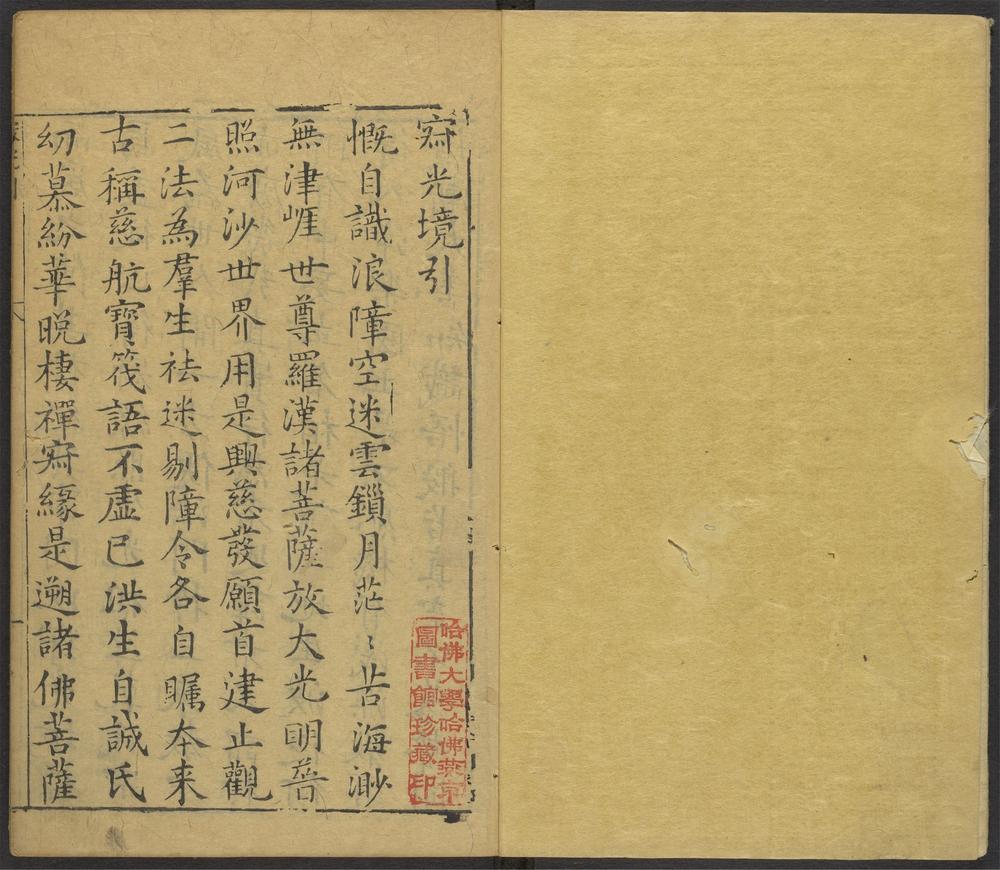 㝥光境引
慨自識浪障空迷雲鎖月茫〻苦海渺
無津崕世尊羅漢諸菩薩放大光明普
照河沙世界用是興慈發願首建止觀
二法為羣生祛迷剔障令各自矚本来
古稱慈航寶筏語不虛已洪生自誠氏
幼慕紛華晚棲禪㝥緣是遡諸佛菩薩
哈佛大學哈佛燕京
圖書館珍藏印